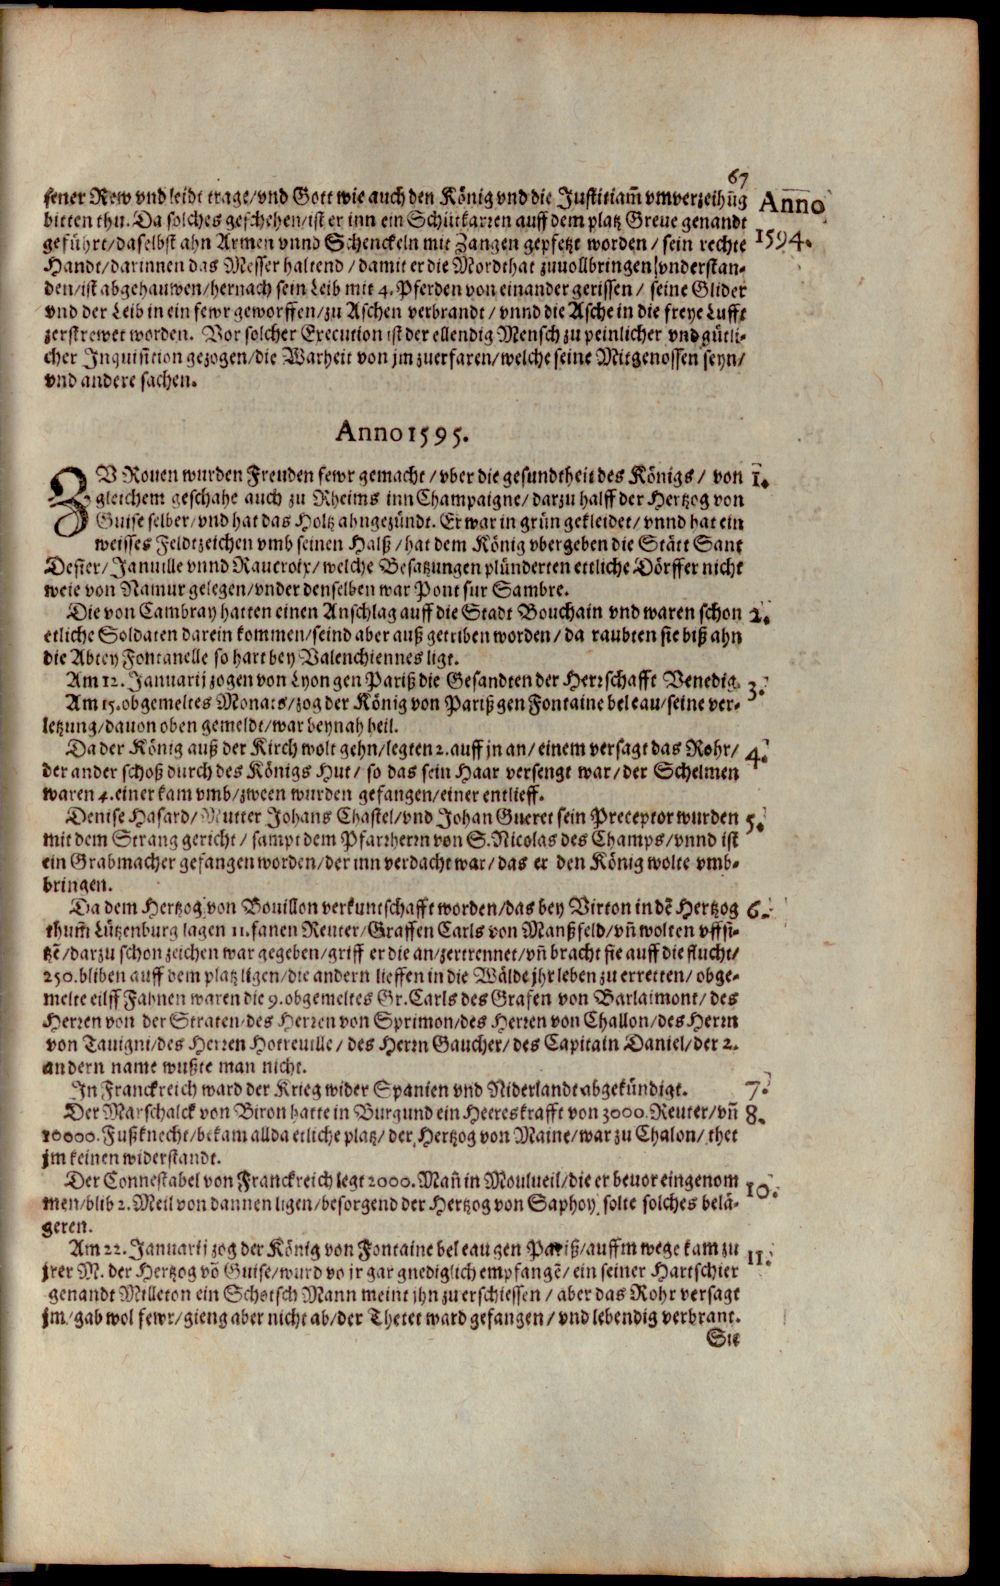 67
sener Rew vnd leidt trage/vnd Gott wie auch den König vnd die Justitiam̃ vmverzeihũg
Anno
bitten thu. Da solches geschehen/ist er inn ein Schütkarren auff dem platz Greue genandt
geführt/daselbst ahn Armen vnnd Schenckeln mit Zangen gepfetzt worden / sein rechte
1594.
Handt/darinnen das Messer haltend / damit er die Mordthat zuuollbringen vnderstan-
den/ist abgehauwen/hernach sein Leib mit 4. Pferden von einander gerissen / seine Glider
vnd der Leib in ein fewr geworffen/zu Aschen verbrandt / vnnd die Asche in die freye Lufft
zerstrewet worden. Vor solcher Execution ist der ellendig Mensch zu peinlicher vnd gütli-
cher Inquisition gezogen/die Warheit von jm zuerfaren/welche seine Mitgenossen seyn/
vnd andere sachen.
Anno 1595.
ZV Rouen wurden Freuden fewr gemacht / vber die gesundtheit des Königs / von
1.
gleichem geschahe auch zu Rheims inn Champaigne/darzu halff der Hertzog von
Guise selber/vnd hat das Holtz ahngezündt. Er war in grün gekleidet/vnnd hat ein
weisses Feldtzeichen vmb seinen Halß / hat dem König vbergeben die Stätt Sant
Desier/Januille vnnd Raucroix/welche Besatzungen plünderten ettliche Dörffer nicht
weit von Namur gelegen/vnder denselben war Pont sur Sambre.
Die von Cambray hatten einen Anschlag auff die Stadt Bouchain vnd waren schon
2.
etliche Soldaten darein kommen/seind aber auß getriben worden / da raubten sie biß ahn
die Abtey Fontanelle so hart bey Valenchiennes ligt.
Am 12. Januarij zogen von Lyon gen Pariß die Gesandten der Herrschafft Venedig.
3.
Am 15. obgemeltes Monats/zog der König von Pariß gen Fontaine beleau/seine ver-
letzung/dauon oben gemeldt/war beynah heil.
Da der König auß der Kirch wolt gehn/legten 2. auff jn an / einem versagt das Rohr/
4.
der ander schoß durch des Königs Hut / so das sein Haar versengt war/der Schelmen
waren 4. einer kam vmb/zween wurden gefangen/einer entlieff.
Denise Hasard/Mutter Johans Chastel/vnd Johan Gueret sein Preceptor wurden
5.
mit dem Strang gericht / sampt dem Pfarrherrn von S. Nicolas des Champs/vnnd ist
ein Grabmacher gefangen worden/der inn verdacht war/das er den König wolte vmb-
bringen.
Da dem Hertzog von Bouillon verkuntschafft worden/das bey Virton in dẽ Hertzog
6.
thum̃ Lützenburg lagen 11. fanen Reuter/Graffen Carls von Manßfeld/vñ wolten vffsi-
tzẽ/darzu schon zeichen war gegeben/griff er die an/zertrennet/vñ bracht sie auff die flucht/
250. bliben auff dem platz ligen/die andern lieffen in die Wälde jhr leben zu erretten/obge-
melte eilff Fahnen waren die 9. obgemeltes Gr. Carls des Grafen von Barlaimont/des
Herren von der Straten/des Herren von Sprimon/des Herren von Challon/des Herrn
von Tauigni/des Herren Hotreuille / des Herrn Gaucher/des Capitain Daniel/der 2.
andern name wußte man nicht.
In Franckreich ward der Krieg wider Spanien vnd Niderlandt abgekündigt.
7.
Der Marschalck von Biron hatte in Burgund ein Heereskrafft von 3000. Reuter/vñ
8.
10000. Fußknecht/bekam allda etliche platz/der Hertzog von Maine/war zu Chalon/thet
jm keinen widerstandt.
Der Connestabel von Franckreich legt 2000. Mañ in Moulueil/die er beuor eingenom
10.
men/blib 2. Meil von dannen ligen/besorgend der Hertzog von Saphoy solte solches belä-
geren.
Am 22. Januarij zog der König von Fontaine beleau gen Pariß/auffm wege kam zu
11.
jrer M. der Hertzog võ Guise/wurd vo jr gar gnediglich empfangẽ/ein seiner Hartschier
genandt Milleton ein Schotsch Mann meint jhn zu erschiessen / aber das Rohr versagt
jm/gab wol fewr/gieng aber nicht ab/der Thetet ward gefangen/vnd lebendig verbrant.
Sie